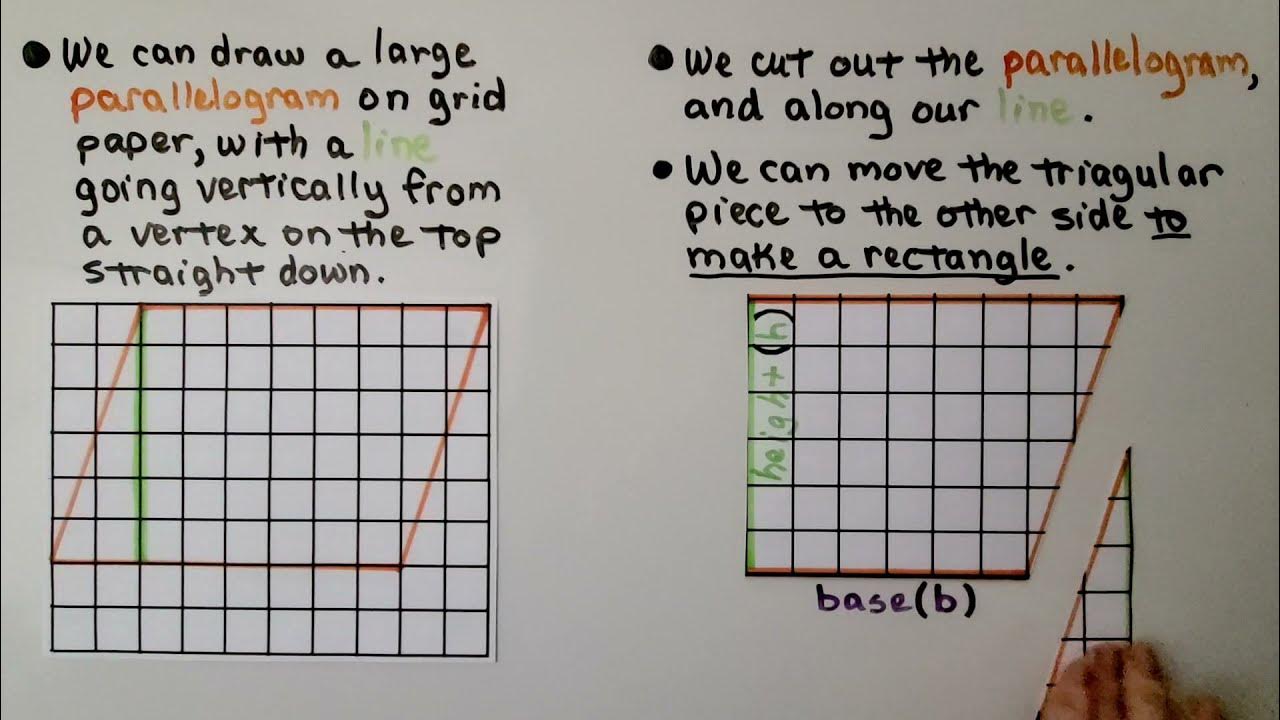 • We can draw a large
parallelogram on grid
paper, with a line
going vertically from
a vertex on the top
straight down.
• We cut out the parallelogram,
and along our line.
• We can move the triagular
piece to the other side to
make a rectangle.
height (h)
base (b)